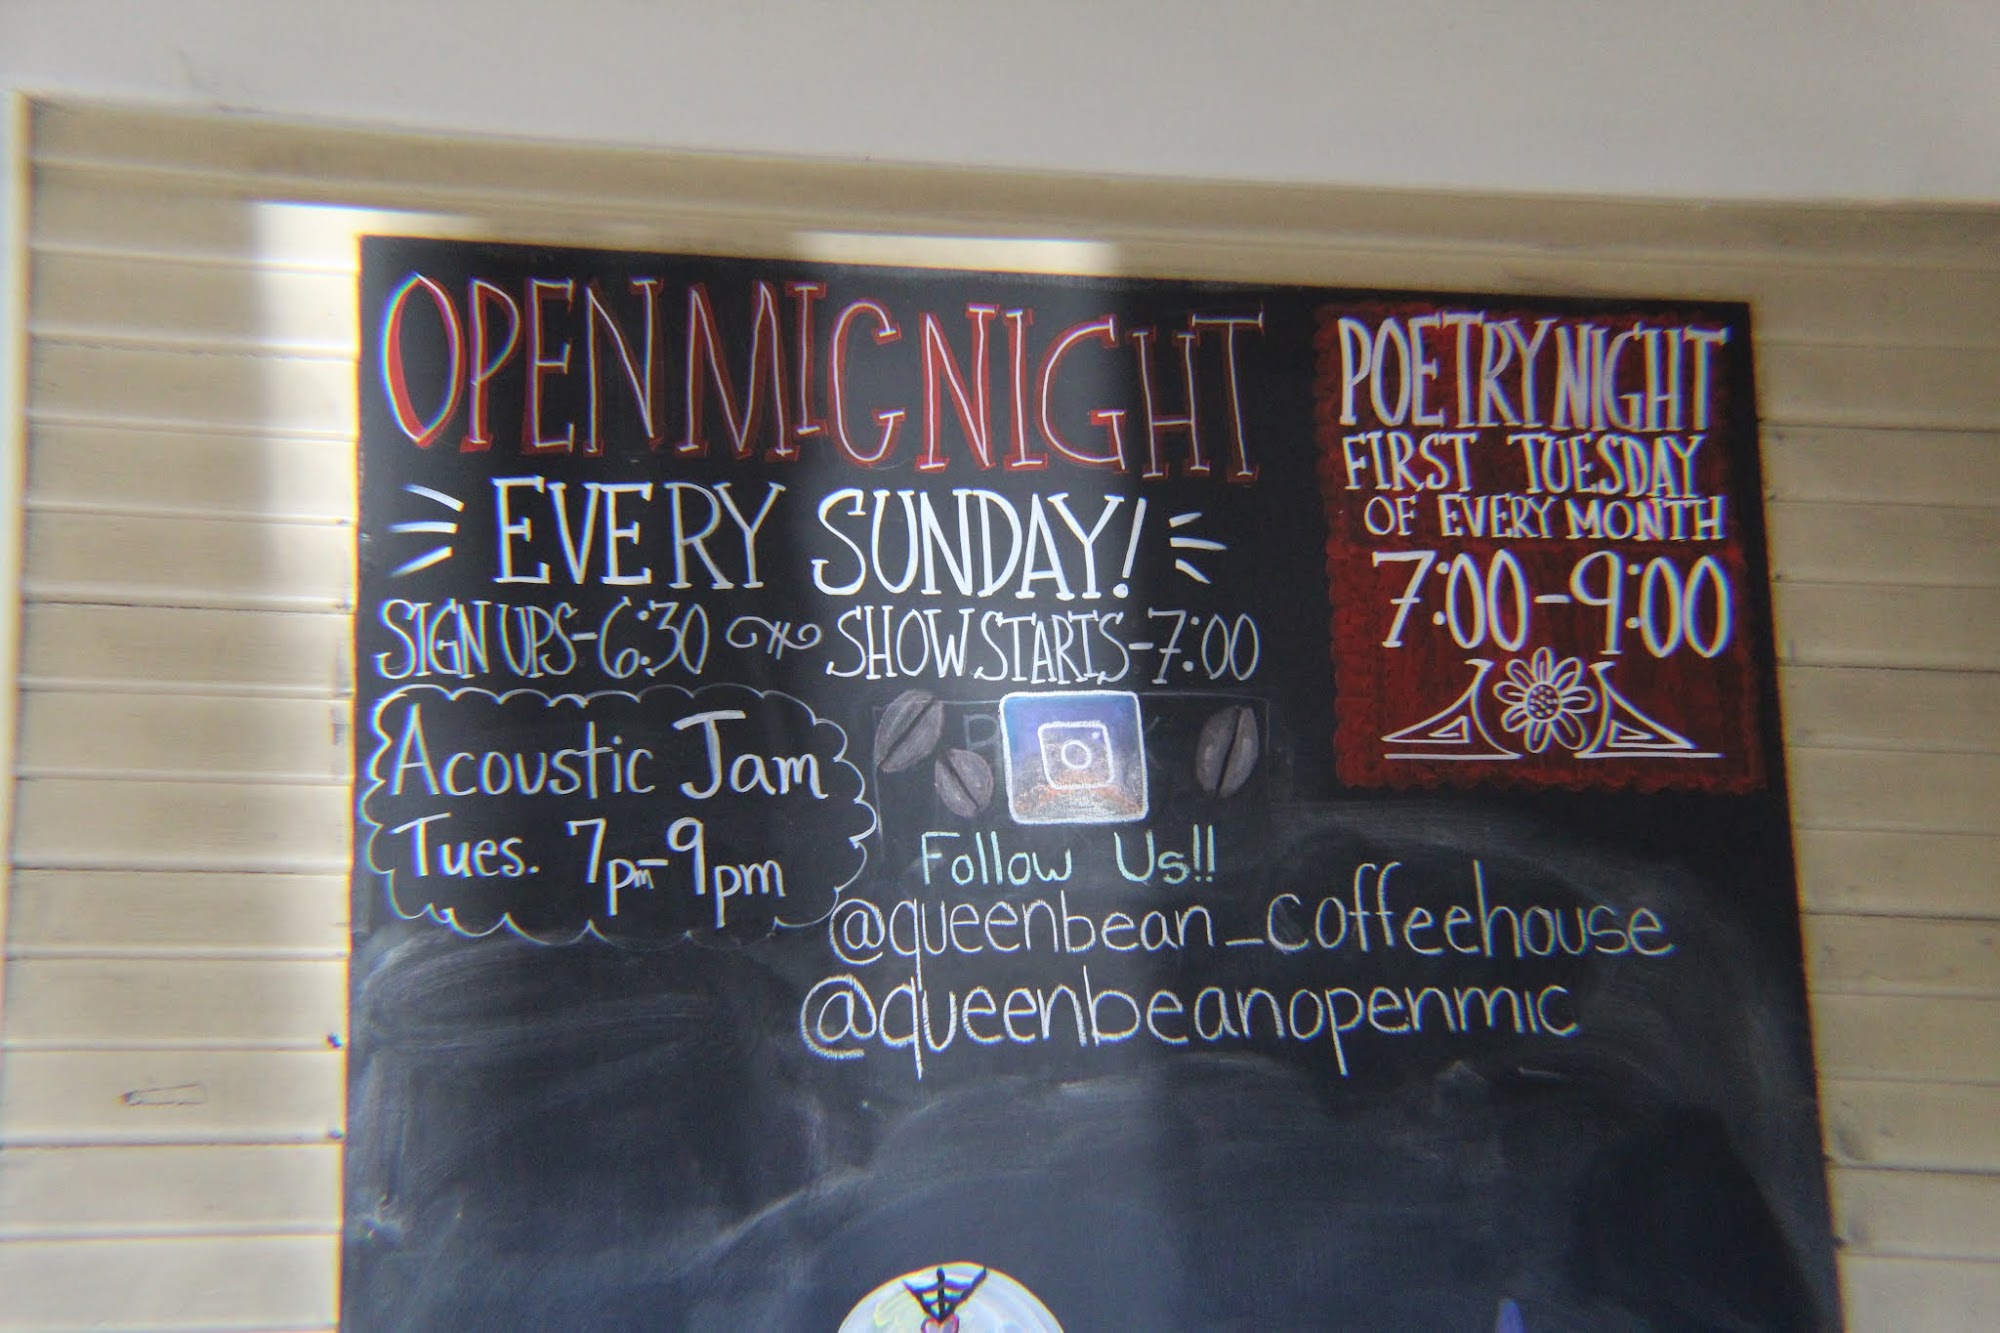 OPEN MIC NIGHT
EVERY SUNDAY!
SIGN UPS-6:30 SHOW STARTS-7:00
Acoustic Jam
Tues. 7pm-9pm
POETRY NIGHT
FIRST TUESDAY
OF EVERY MONTH
7:00-9:00
Follow Us!!
@queenbean_coffeehouse
@queenbeanopenmic